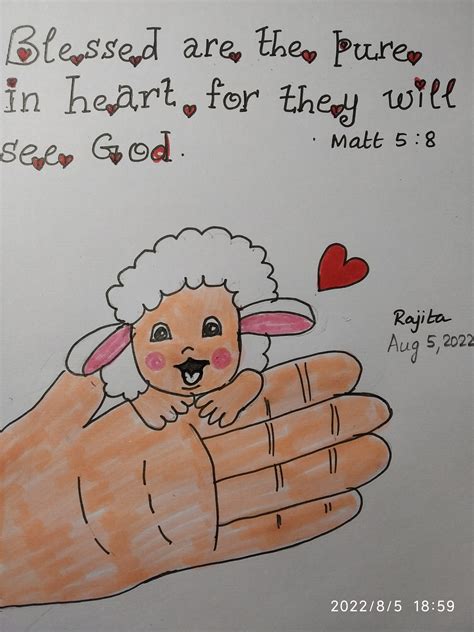 Blessed are the pure
in heart, for they will
see God.
Matt 5:8
Rajita
Aug 5, 2022
2022/8/5 18:59